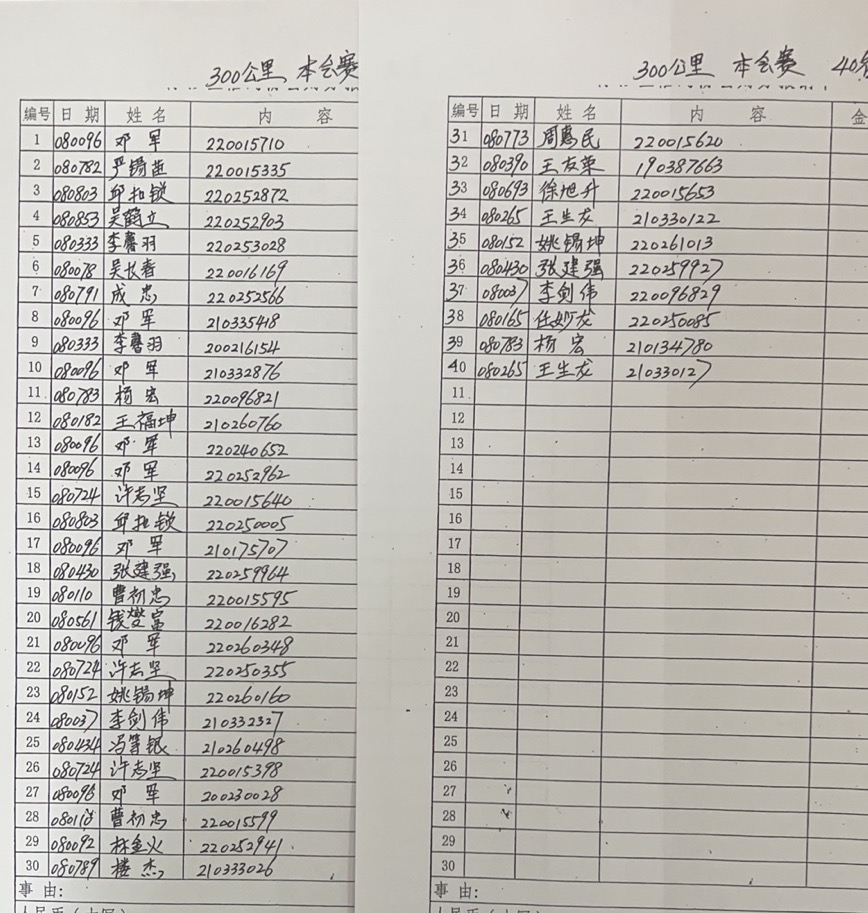 300公里 本会赛
编号 日期 姓名 内容
1 080096 邓军 220015710
2 080782 严锡苗 220015335
3 080803 邱扣锁 220252872
4 080853 吴鹤立 220252903
5 080333 李馨羽 220253028
6 080078 吴长春 220016169
7 080791 成忠 220252566
8 080096 邓军 210335418
9 080333 李馨羽 200216154
10 080096 邓军 210332876
11 080783 杨宏 220096821
12 080182 王福坤 210260760
13 080096 邓军 220240652
14 080096 邓军 220252962
15 080724 许志坚 220015640
16 080803 邱扣锁 220250005
17 080096 邓军 210175707
18 080430 张建强 220259964
19 080110 曹初忠 220015595
20 080561 钱燮富 220016282
21 080096 邓军 220260348
22 080724 许志坚 220250355
23 080152 姚锡坤 220260160
24 080037 李剑伟 210332327
25 080434 冯等银 210260498
26 080724 许志坚 220015398
27 080096 邓军 200230028
28 080110 曹初忠 220015599
29 080092 林金火 220252941
30 080789 楼杰 210333026
事由:
300公里 本会赛 40
编号 日期 姓名 内容 金
31 080773 周惠民 220015620
32 080390 王友荣 190387663
33 080693 徐旭升 220015653
34 080265 王生龙 210330122
35 080152 姚锡坤 220261013
36 080430 张建强 220259927
37 080037 李剑伟 220096829
38 080165 任妙龙 220250085
39 080783 杨宏 210134780
40 080265 王生龙 210330127
11
12
13
14
15
16
17
18
19
20
21
22
23
24
25
26
27
28
29
30
事由: